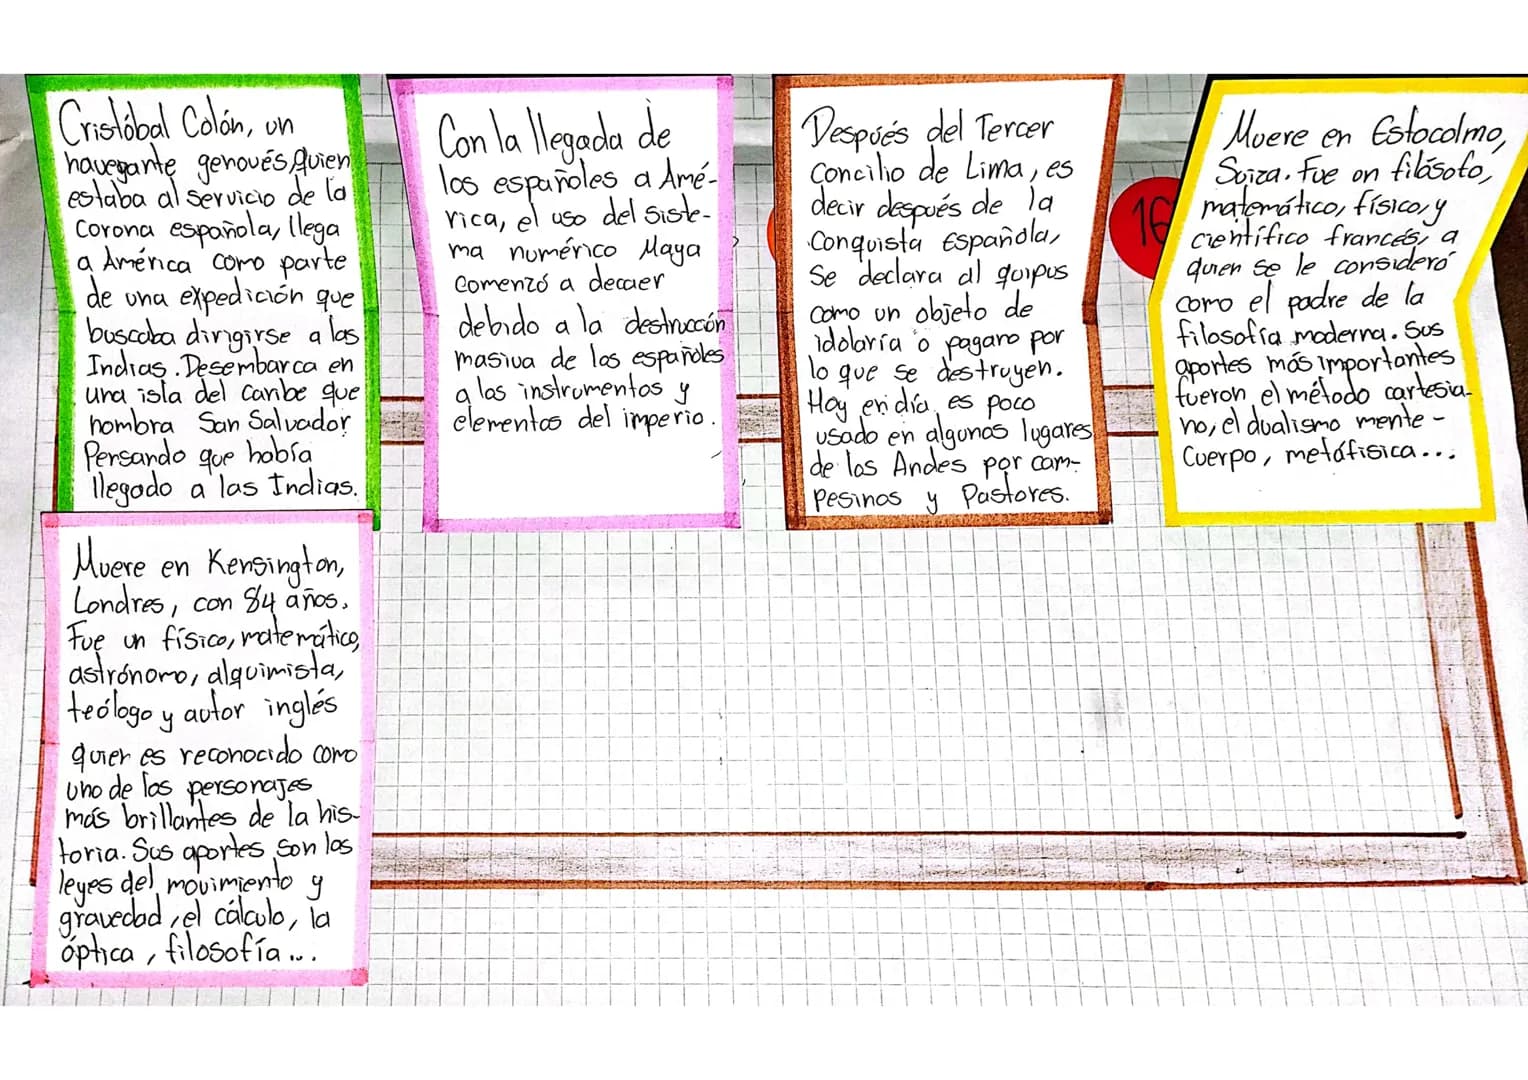 Cristóbal Colón, un
navegante genovés, quien
estaba al servicio de la
Corona española, llega
a América como parte
de una expedición que
buscaba dirigirse a las
Indias. Desembarca en
una isla del Caribe que
nombra San Salvador
Pensando que había
llegado a las Indias.
Con la llegada de
los españoles a Amé-
rica, el uso del siste-
ma numérico Maya
comenzó a decaer
debido a la destrucción
masiva de los españoles
a los instrumentos y
elementos del imperio.
Después del Tercer
Concilio de Lima, es
decir después de la
Conquista Española,
se declara al quipus
como un objeto de
idolaría o pagano por
lo que se destruyen.
Hoy en día es poco
usado en algunos lugares
de los Andes por cam-
pesinos y Pastores.
16
Muere en Estocolmo,
Suiza. Fue un filósofo,
matemático, físico, y
científico francés, a
quien se le consideró
como el padre de la
filosofía moderna. Sus
aportes más importantes
fueron el método cartesia-
no, el dualismo mente-
Cuerpo, metáfisica...
Muere en Kensington,
Londres, con 84 años.
Fue un físico, matemático,
astrónomo, alquimista,
teólogo y autor inglés
quien es reconocido como
uno de los personajes
más brillantes de la his-
toria. Sus aportes son las
leyes del movimiento y
gravedad, el cálculo, la
óptica, filosofía...